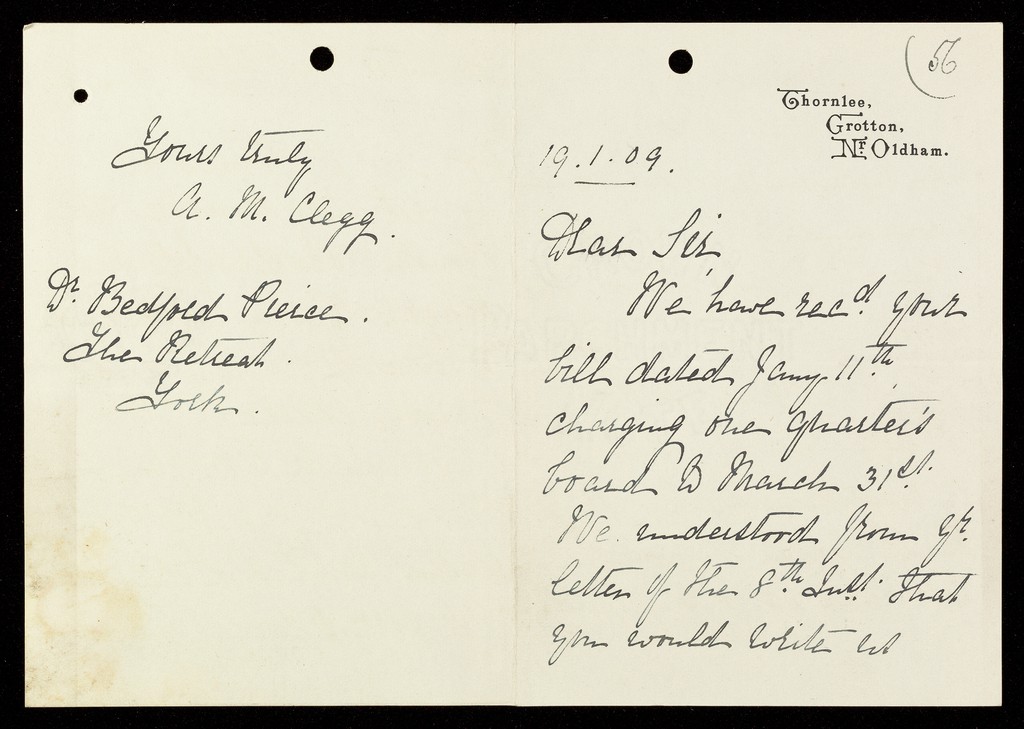 (56
Thornlee,
Grotton,
Nr. Oldham.
19.1.09.
Dear Sir,
We have recd. your
bill dated Jany 11th,
charging one quarter's
board to March 31st.
We understood from yr.
letter of the 8th Inst. that
you would write us
Yours truly
A. M. Clegg.
Dr. Bedford Pierce.
The Retreat.
York.